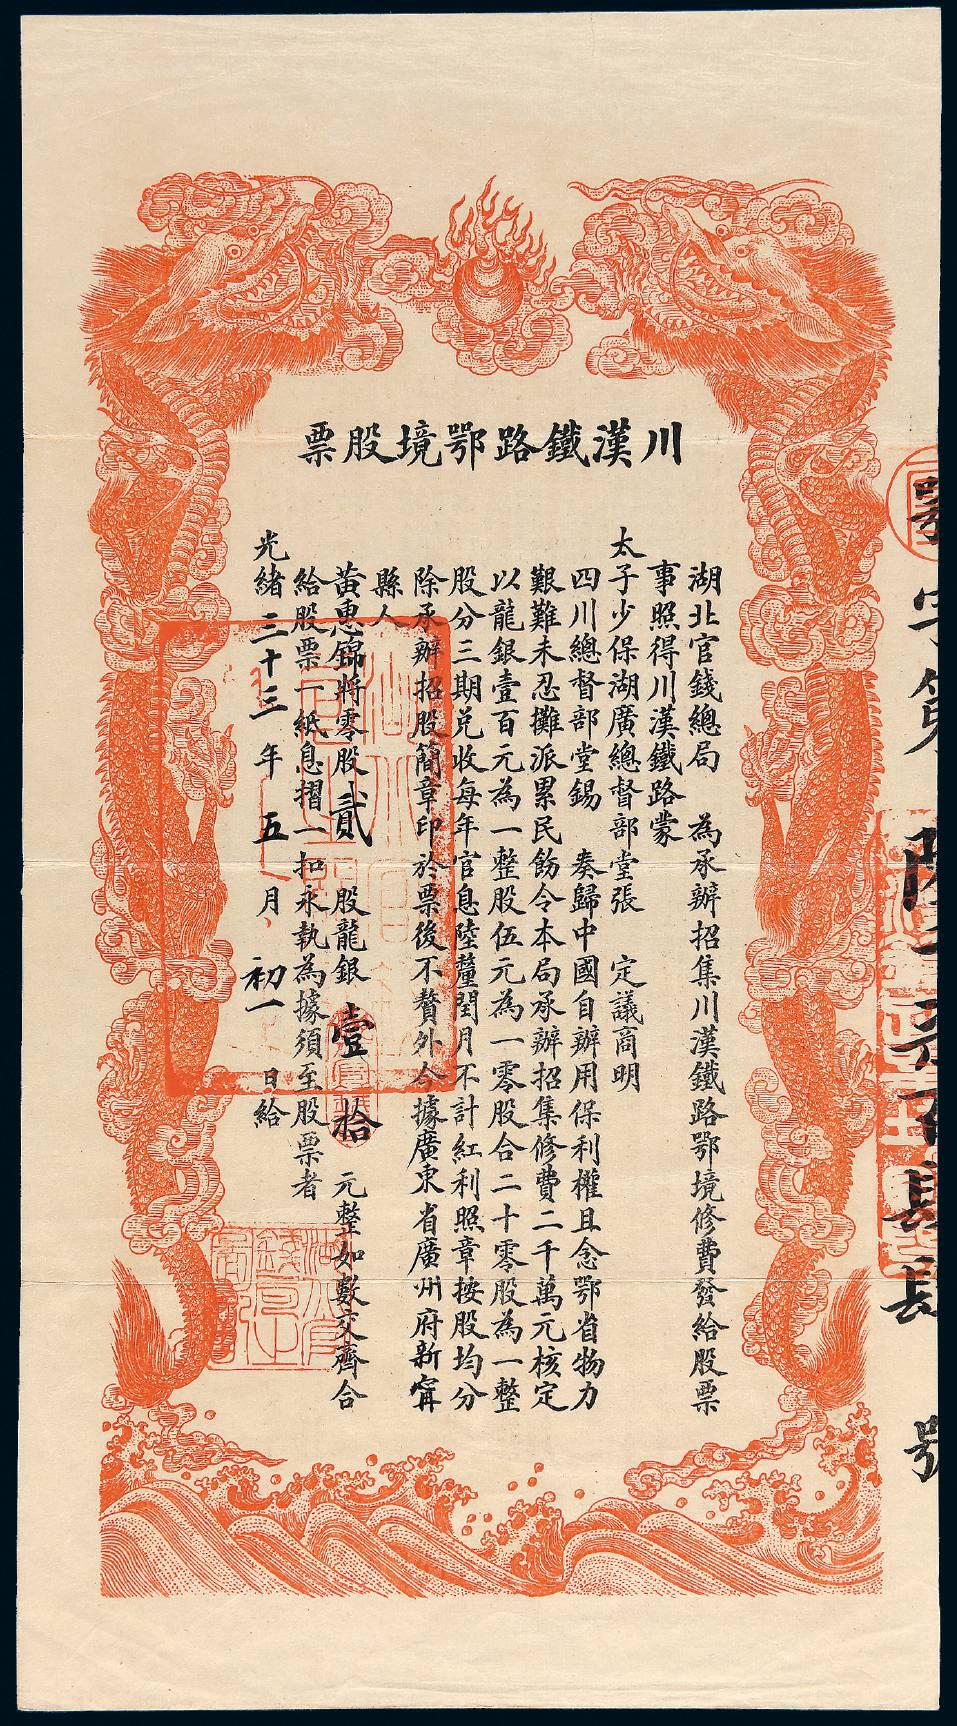 川漢鐵路鄂境股票
湖北官錢總局　為承辦招集川漢鐵路鄂境修費發給股票
事照得川漢鐵路蒙
太子少保湖廣總督部堂張　定議商明
四川總督部堂錫　奏歸中國自辦用保利權且念鄂省物力
艱難未忍攤派累民飭令本局承辦招集修費二千萬元核定
以龍銀壹百元為一整股伍元為一零股合二十零股為一整
股分三期兌收每年官息陸釐閏月不計紅利照章按股均分
除承辦招股簡章印於票後不贅外今據廣東省廣州府新甯
縣人
黃惠錦將零股貳股龍銀壹拾元整如數交齊合
給股票一紙息摺一扣永執為據須至股票者
光緒三十三年五月初一日給
字第
號